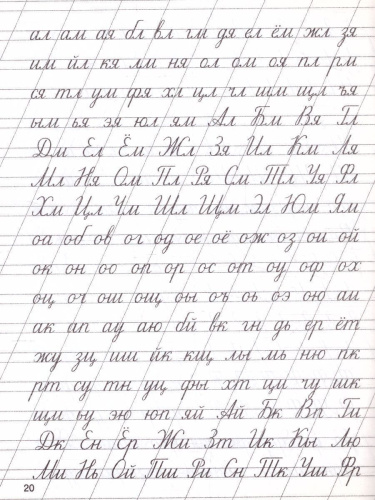 ал ам ая бл вл гм дя ел ём жл зя
им йл кя лм ня ол ом оя пл рм
ся тл ум фя хл цл чл шм щл ъя
ым ья эя юл ям Ал Бм Вя Гл
Дм Ел Ём Жл Зя Ил Км Ля
Мл Ня Ом Пл Ря См Тл Уя Фл
Хм Цл Чм Шл Щм Эл Юм Ям
оа об ов ог од ое оё ож оз ои ой
ок он оо оп ор ос от оу оф ох
оц оч ош ощ оы оъ оь оэ ою аи
ак ап ау аю бй вк гн дь ер ёт
жу зц иш йк кщ лы мь ню пк
рт су тн уц фы хт ци чу шк
щм ьу эю юп яй Ай Бк Вп Ги
Дк Ен Ёр Жи Зт Ик Кы Лю
Ми Нь Ой Пш Ри Сн Тк Уш Фр
20